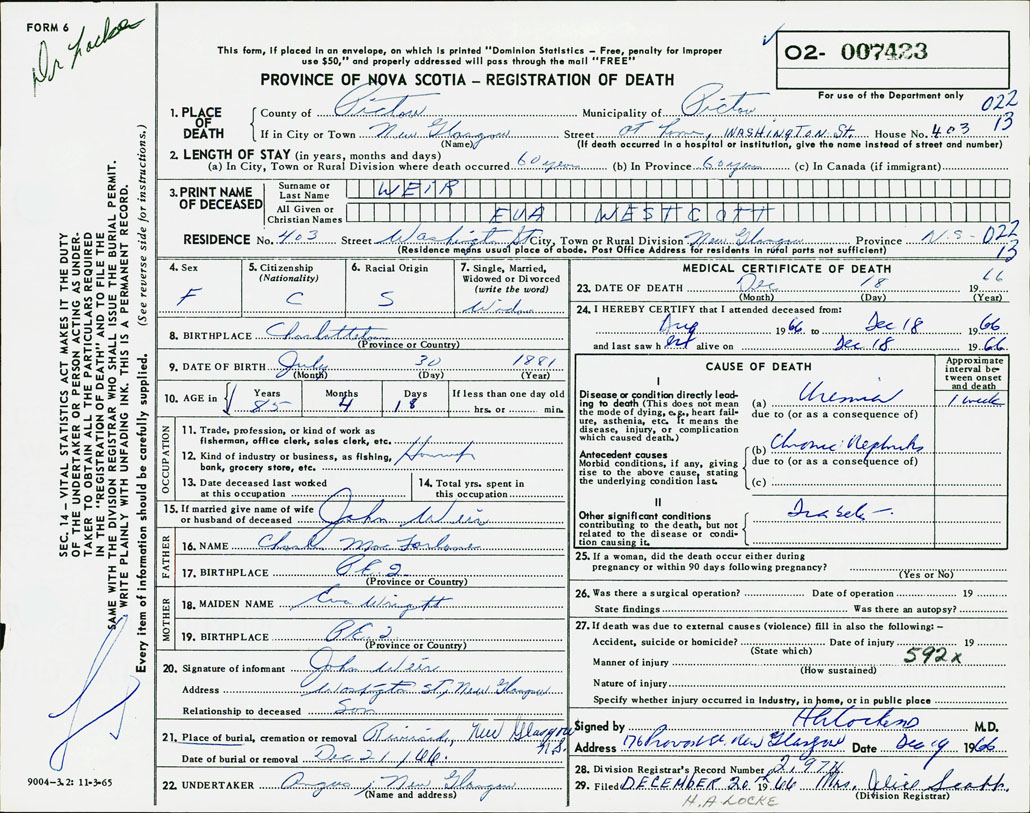 FORM 6
Dr Locke
This form, if placed in an envelope, on which is printed "Dominion Statistics – Free, penalty for improper
use $50," and properly addressed will pass through the mail "FREE"
PROVINCE OF NOVA SCOTIA – REGISTRATION OF DEATH
O2- 007423
For use of the Department only
022
13
1. PLACE OF DEATH County of Pictou Municipality of Pictou
If in City or Town New Glasgow Street at home, WASHINGTON St. House No. 403
(Name) (If death occurred in a hospital or institution, give the name instead of street and number)
2. LENGTH OF STAY (in years, months and days)
(a) In City, Town or Rural Division where death occurred 60 years (b) In Province 60 years (c) In Canada (if immigrant)
3. PRINT NAME OF DECEASED Surname or Last Name WEIR
All Given or Christian Names EVA WESTCOTT
RESIDENCE No. 403 Street Washington St City, Town or Rural Division New Glasgow Province N.S- 022
13
(Residence means usual place of abode. Post Office Address for residents in rural parts not sufficient)
4. Sex F
5. Citizenship (Nationality) C
6. Racial Origin S
7. Single, Married, Widowed or Divorced (write the word) Widow
8. BIRTHPLACE Charlottetown
(Province or Country)
9. DATE OF BIRTH July 30 1881
(Month) (Day) (Year)
10. AGE in Years 85 Months 4 Days 18 If less than one day old hrs. or min.
OCCUPATION
11. Trade, profession, or kind of work as fisherman, office clerk, sales clerk, etc.
12. Kind of industry or business, as fishing, bank, grocery store, etc. Housewife
13. Date deceased last worked at this occupation
14. Total yrs. spent in this occupation
15. If married give name of wife or husband of deceased John Weir
FATHER
16. NAME Charles MacFarlane
17. BIRTHPLACE P.E.I.
(Province or Country)
MOTHER
18. MAIDEN NAME Eva Wright
19. BIRTHPLACE P.E.I.
(Province or Country)
20. Signature of informant John Weir
Address Washington St, New Glasgow
Relationship to deceased Son
21. Place of burial, cremation or removal Riverside, New Glasgow N.S.
Date of burial or removal Dec 21/66.
22. UNDERTAKER Angus, New Glasgow
(Name and address)
MEDICAL CERTIFICATE OF DEATH
23. DATE OF DEATH Dec 18 1966
(Month) (Day) (Year)
24. I HEREBY CERTIFY that I attended deceased from:
Aug 1966 to Dec 18 1966
and last saw her alive on Dec 18 1966
CAUSE OF DEATH
Approximate interval between onset and death
I
Disease or condition directly leading to death (This does not mean the mode of dying, e.g., heart failure, asthenia, etc. It means the disease, injury, or complication which caused death.)
(a) Uremia 1 week
due to (or as a consequence of)
Antecedent causes
Morbid conditions, if any, giving rise to the above cause, stating the underlying condition last.
(b) Chronic Nephritis
due to (or as a consequence of)
(c)
II
Other significant conditions contributing to the death, but not related to the disease or condition causing it.
25. If a woman, did the death occur either during pregnancy or within 90 days following pregnancy?
(Yes or No)
26. Was there a surgical operation? Date of operation 19
State findings Was there an autopsy?
27. If death was due to external causes (violence) fill in also the following: –
Accident, suicide or homicide? Date of injury 19
(State which)
Manner of injury 592x
(How sustained)
Nature of injury
Specify whether injury occurred in Industry, in home, or in public place
Signed by M.D.
Address 176 Provost St. New Glasgow Date Dec 19 1966
28. Division Registrar's Record Number
29. Filed DECEMBER 20th 1966 Mrs. Alice Scott
(Division Registrar)
H.A LOCKE
SEC. 14 – VITAL STATISTICS ACT MAKES IT THE DUTY
OF THE UNDERTAKER OR PERSON ACTING AS UNDER-
TAKER TO OBTAIN ALL THE PARTICULARS REQUIRED
IN THE "REGISTRATION OF DEATH" AND TO FILE THE
SAME WITH THE DIVISION REGISTRAR WHO SHALL ISSUE THE BURIAL PERMIT.
WRITE PLAINLY WITH UNFADING INK. THIS IS A PERMANENT RECORD.
Every item of information should be carefully supplied. (See reverse side for instructions.)
9004-3.2: 11-3-65